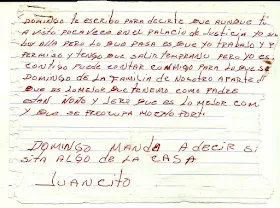 DOMINGO TE ESCRIBO PARA DECIRTE QUE AUNQUE TU
A VISTO POCA VECES EN EL PALACIO DE JUSTICIA YO SI
BOY ALLA PERO LO QUE PASA ES QUE YO TRABAJO Y PI
PERMISO Y TENGO QUE SALIR TEMPRANO PERO YO ES
CONTIGO PUEDE CONTAR CONMIGO PARA LO QUE SE
DOMINGO DE LA FAMILIA DE NOSOTRO APARTE
QUE ES LO MEJOR QUE TENEMO COMO PADRE
ESTAN Y SERO QUE ES LO MEJOR COM
Y QUE SE PREOCUPA MUCHO POR TI
DOMINGO MANDA A DECIR SI
SITA ALGO DE LA CASA
JUANCITO